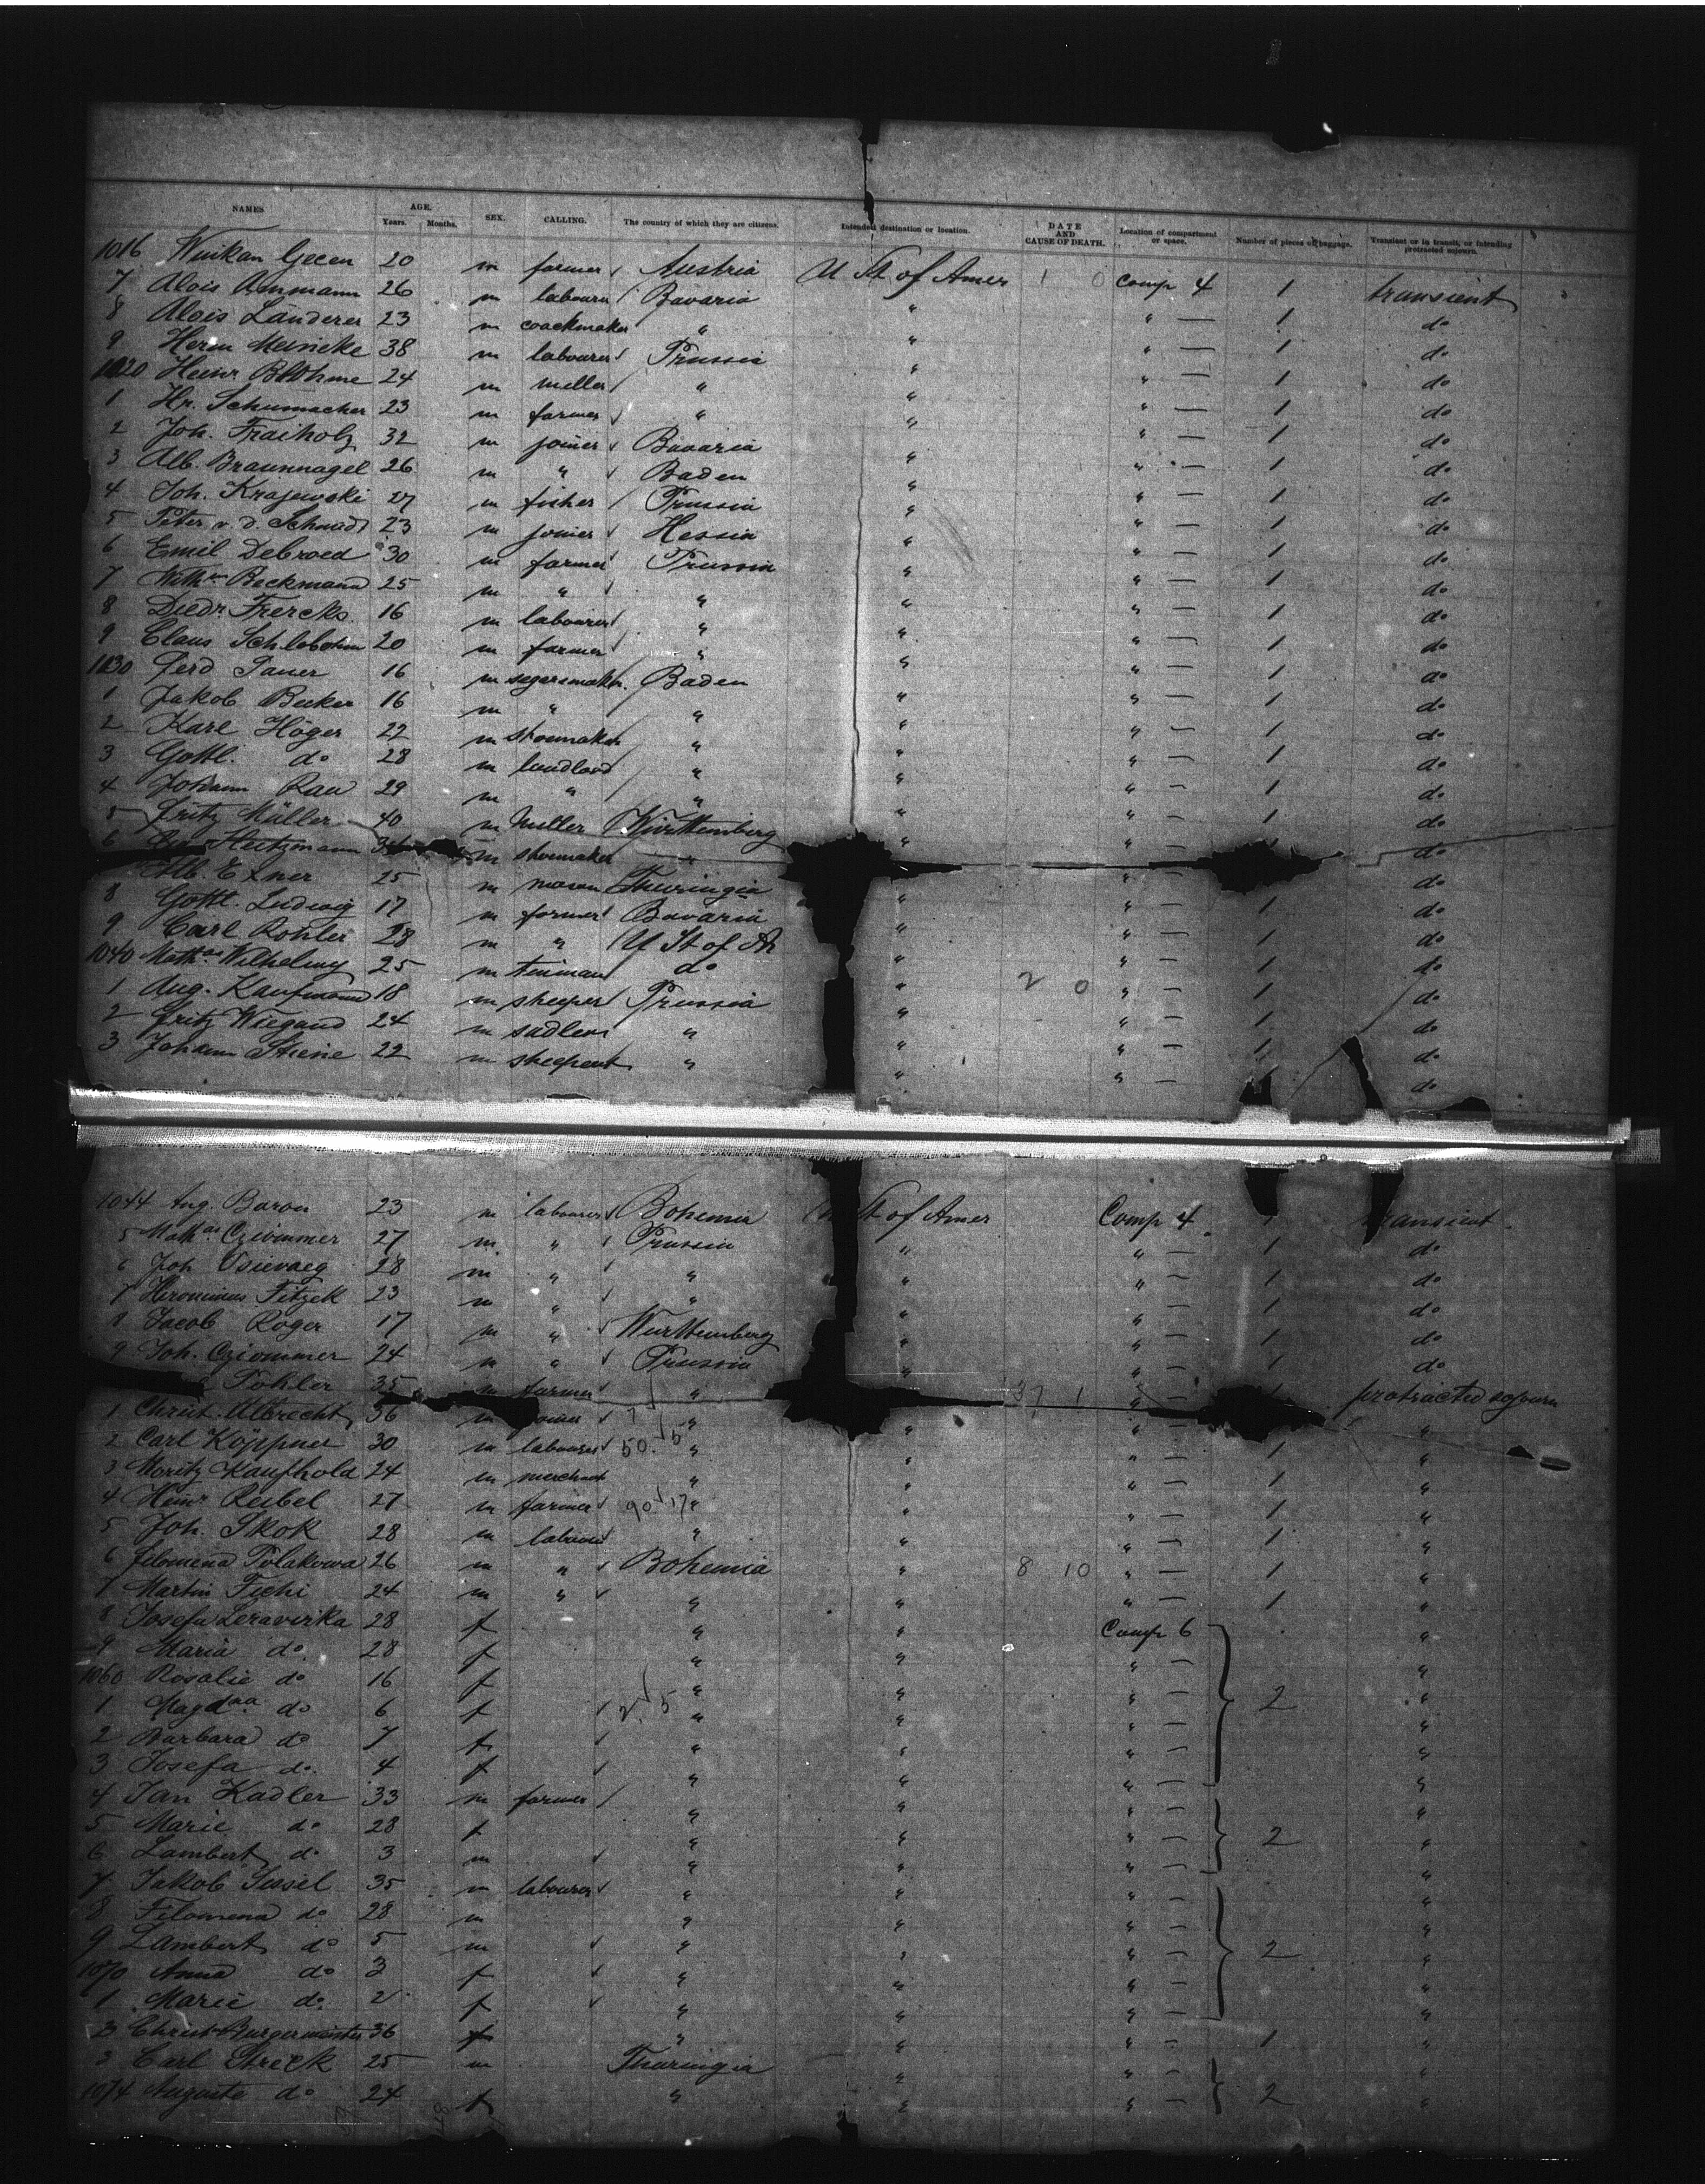 NAMES. AGE. Years. Months. SEX. CALLING. The country of which they are citizens. Intended destination or location. DATE AND CAUSE OF DEATH. Location of compartment or space. Number of pieces of baggage. Transient or in transit, or intending protracted sojourn.
1016 Gecen 20 m farmer Austria U St. of Amer 1 0 Comp 4 1 transient
7 Alois Ammann 26 m labourer Bavaria " " — 1 do
8 Alois Länderer 23 m coackmaker " " " — 1 do
9 Herm Meinicke 38 m labourer Prussia " " — 1 do
1020 Heinr Blohme 24 m miller " " " — 1 do
1 Hr. Schumacher 23 m farmer " " " — 1 do
2 Joh. Fraiholz 32 m joiner Bavaria " " — 1 do
3 Alb. Braunnagel 26 m " Baden " " — 1 do
4 Joh. Krajewski 27 m fisher Prussia " " — 1 do
5 Peter v. d. Schmidt 23 m joiner Hessia " " — 1 do
6 Emil Debroed 30 m farmer Prussia " " — 1 do
7 Wilhm Beckmann 25 m " " " " — 1 do
8 Diedr. Frercks 16 m labourer " " " — 1 do
9 Claus Schlobohm 20 m farmer " " " — 1 do
1030 Ferd Pauer 16 m segarsmaker. Baden " " — 1 do
1 Jakob Becker 16 m " " " " — 1 do
2 Karl Höger 22 m shoemaker " " " — 1 do
3 Gottl. do 28 m landlord " " " — 1 do
4 Johann Rau 29 m " " " " — 1 do
5 Fritz Müller 40 m miller Württemberg " " — do
6 Heitzmann 34 m shoemaker " " — do
Alb. Exner 25 m mason Thuringia " — do
8 Gottl. Ludwig 17 m farmer Bavaria " " — 1 do
9 Carl Kohler 28 m " U St of A " " — 1 do
1040 Mathas Wilhelmy 25 m tinman do " 2 0 " — 1 do
1 Aug. Kaufmann 18 m sheeper Prussia " " — 1 do
2 Fritz Wiegand 24 m sadler " " " — 1 do
3 Johann Stiene 22 m " " " — do
1044 Aug. Baron 23 m labourer Bohemia St of Amer Comp 4 1 transient
5 Mathas Cziommer 27 m " Prussia " " — 1 do
6 Joh 28 m " " " " — 1 do
7 Heronimus Fitzek 23 m " " " " — 1 do
8 Jacob Roger 17 m " Württemberg " " — 1 do
9 Joh. Cziommer 24 m " Prussia " " — 1 do
Pohler 35 m farmer " 37 1 " — 1 protracted sojourn
1 Christ. Albrecht 36 m joiner " " " — "
2 Carl Köppner 30 m labourer 50. 5 " " " — 1 "
3 Moritz Kaufhold 24 m merchant " " " — 1 "
4 Heinr Reibel 27 m farmer 90 17 " " " — 1 "
5 Joh. Skok 28 m labourer " " " — 1 "
6 Filomena Polakowa 26 m " Bohemia " 8 10 " — 1 "
7 Martin Fichi 24 m " " " " — 1 "
8 Josefa Leravirka 28 f " " Comp 6 "
9 Maria do. 28 f " " " — "
1060 Rosalie do 16 f " " " — 2 "
1 Magdaa do 6 f 2. 5 " " " — "
2 Barbara do 7 f " " " — "
3 Josefa do. 4 f " " " — "
4 Jan Kadler 33 m farmer " " " — "
5 Marie do 28 f " " " — 2 "
6 Lambert do 3 m " " " — "
7 Jakob Sissel 35 m labourer " " " — "
8 Filomena do 28 m " " " — "
9 Lambert do 5 m " " " — 2 "
1070 Anna do 3 f " " " — "
1 Marie do. 2 f " " " — "
2 Christ. Burgermeister 36 f " " " – 1 "
3 Carl Streck 25 m Thuringia " " — "
1074 Auguste do 24 f " " " — 2 "